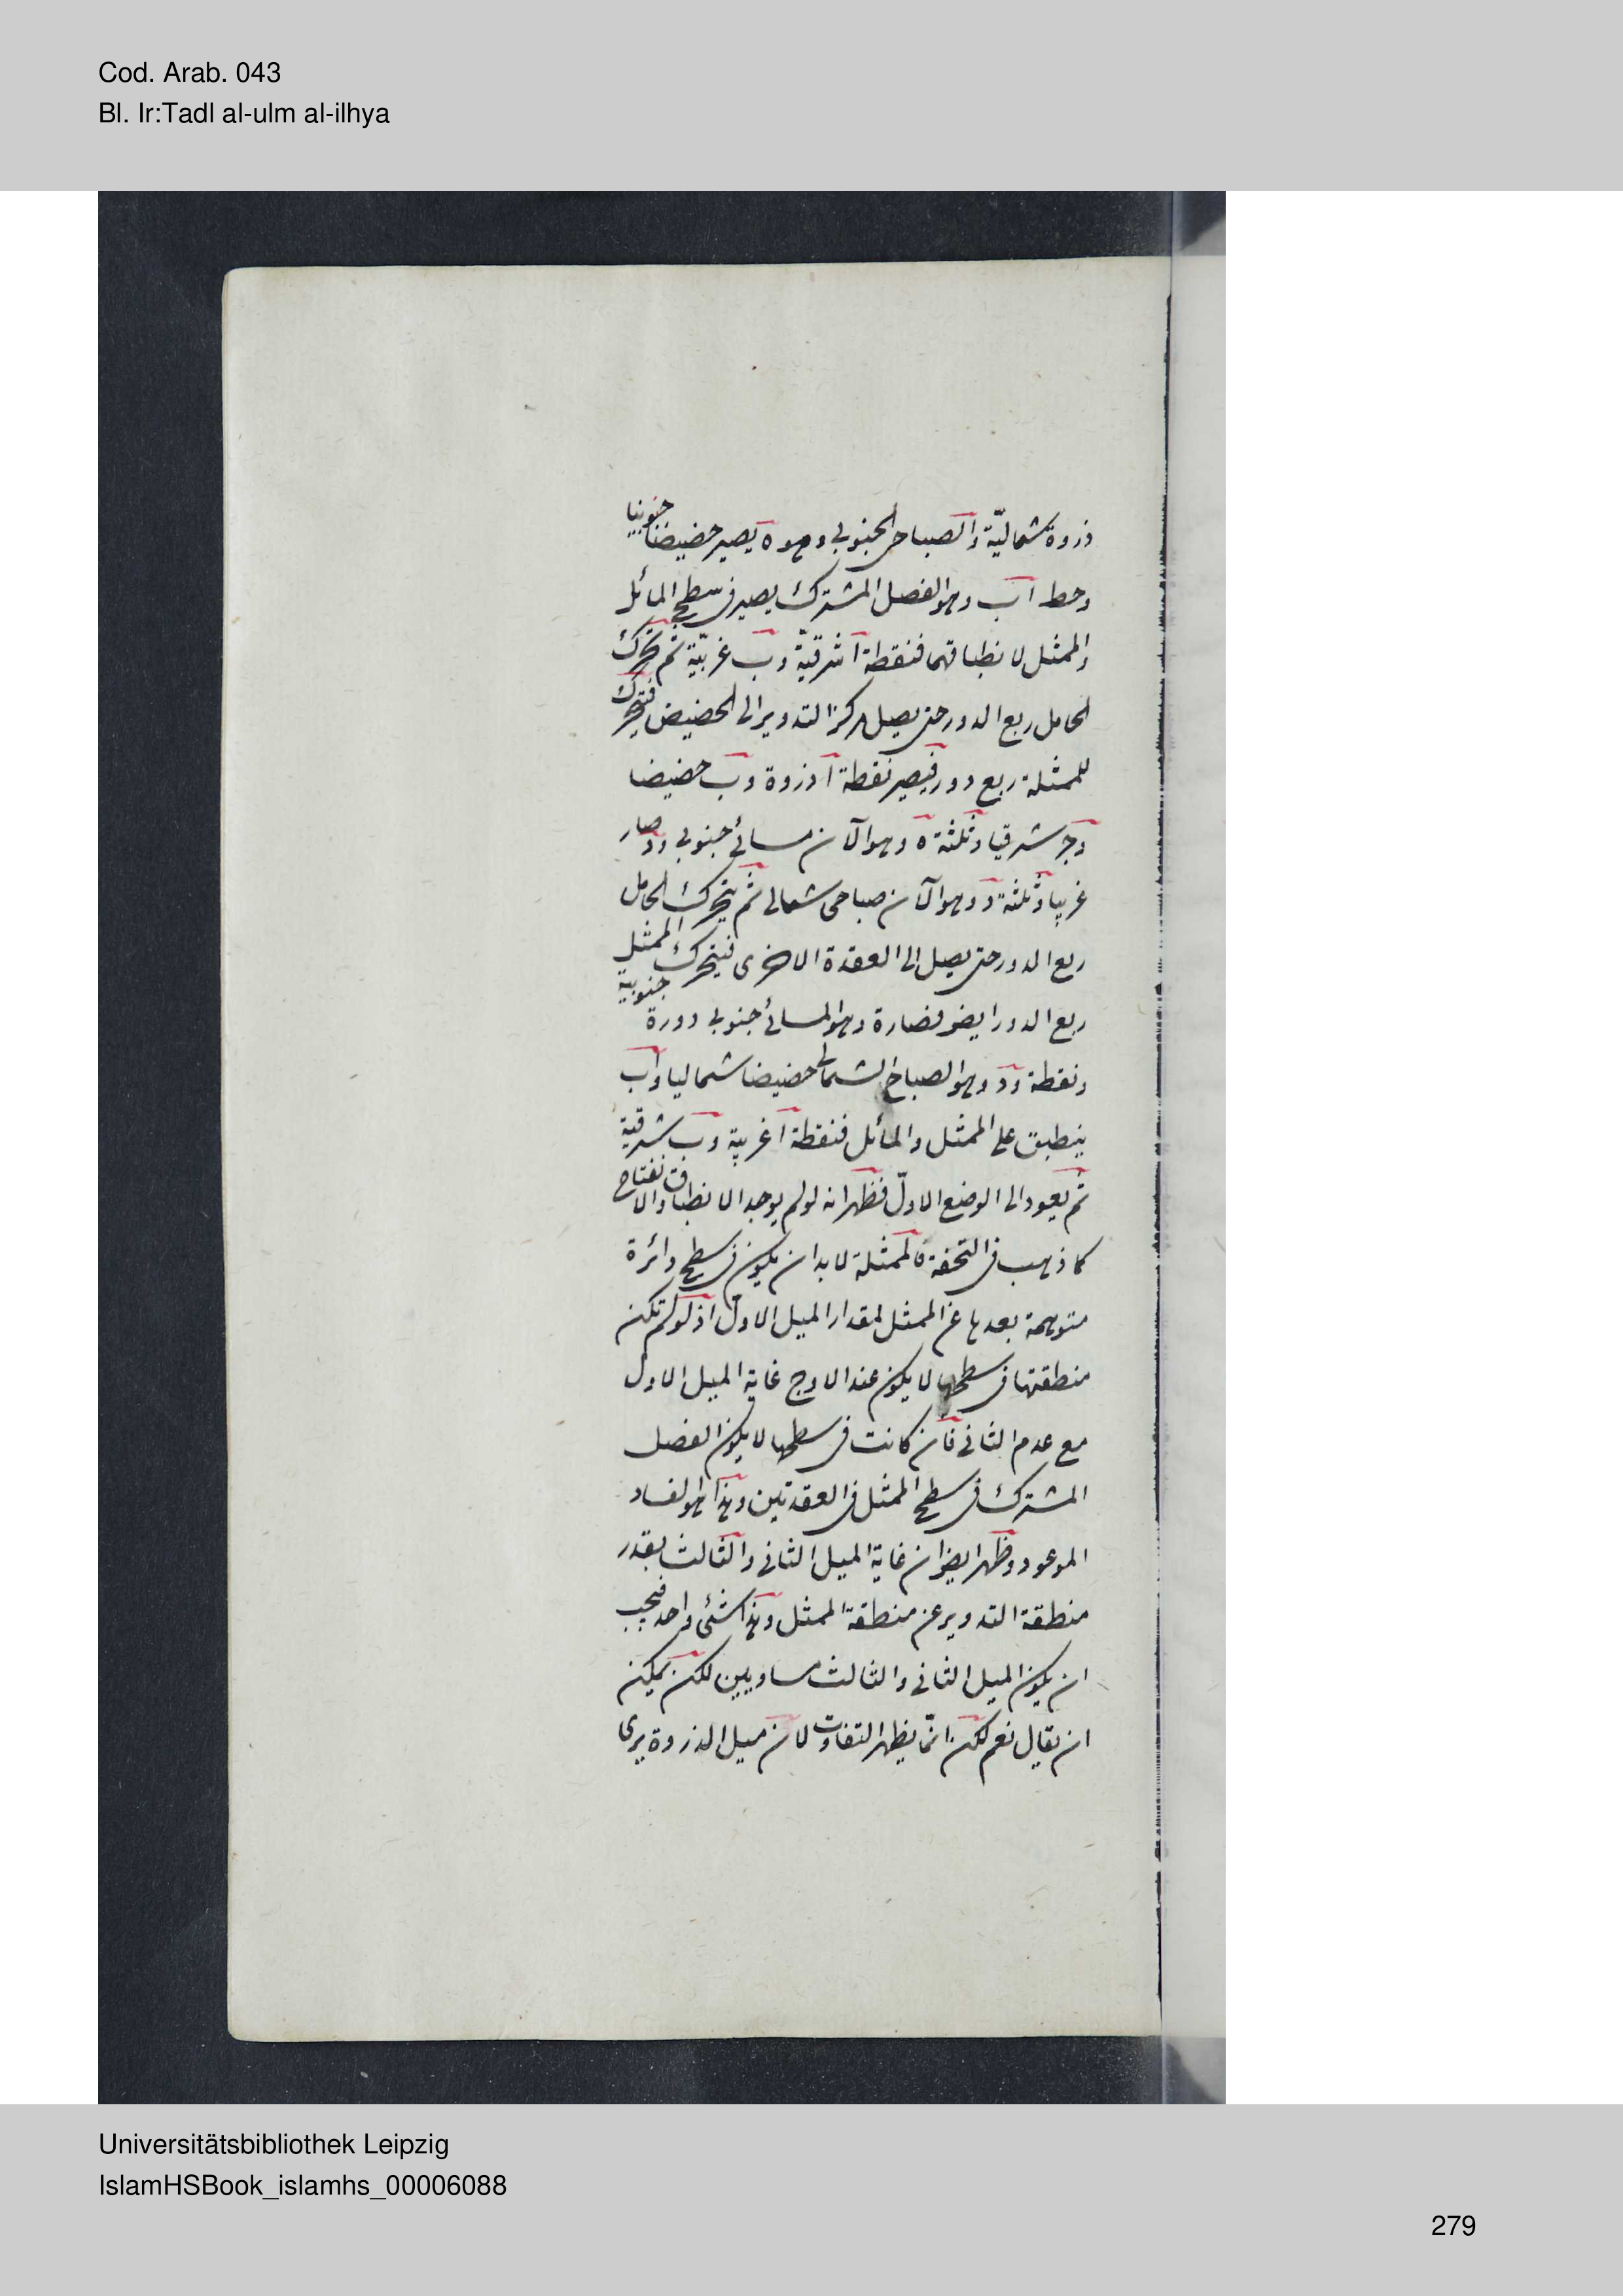 Cod. Arab. 043
Bl. Ir:Tadl al-ulm al-ilhya
ذروة شماليّة والصباحى الجنوبى وهو ه يصير حضيضا جنوبيا
وخط اب وهو الفصل المشترك يصير فى سطح المائل
والممثل لانطباقهما فنقطة ا شرقيّة وب غربيّة ثم تحرك
الحامل ربع الدور حتى يصل مركز التدوير الى الحضيض فتحرك
للممثلة ربع دور فيصير نقطة ا ذروة وب حضيضا
وجر شرقيا وثلثة ه وهو الآن مسائى جنوبى ود صار
غربيا وثلثة د وهو الآن صباحى شمالى ثم يتحرك الحامل
ربع الدور حتى يصل الى العقدة الاخرى فيتحرك الممثل
ربع الدور ايضر فصار ة وهو المسائى جنوبى دورة جنوبية
ونقطة ود وهو الصباحى الشمالى حضيضا شماليا واب
ينطبق على الممثل والمائل فنقطة ا غربية وب شرقية
ثم يعود الى الوضع الاولّ فظهر انه لو لم يوجد الانطباق والانفتاح
كما ذهب فى التحفة فالممثلة لا بد ان يكون فى سطح دائرة
متوهمة بعدها عن الممثل لمقدار الميل الاول اذ لو لم تكن
منطقتها فى سطحها لا يكون عند الاوج غاية الميل الاول
مع عدم الثانى فأن كانت فى سطحها لا يكون الفصل
المشترك فى سطح الممثل فى العقدتين وهذا هو الفساد
الموعود وظهر ايضر ان غاية الميل الثانى والثالث بقدر
منطقة التدوير عن منطقة الممثل وهذا شئى واحد فيجب
ان يكون الميل الثانى والثالث مساويين لكن يمكن
ان يقال نعم لكن انمّا يظهر التفاوت لان ميل الذروة يرى
Universitätsbibliothek Leipzig
IslamHSBook_islamhs_00006088
279